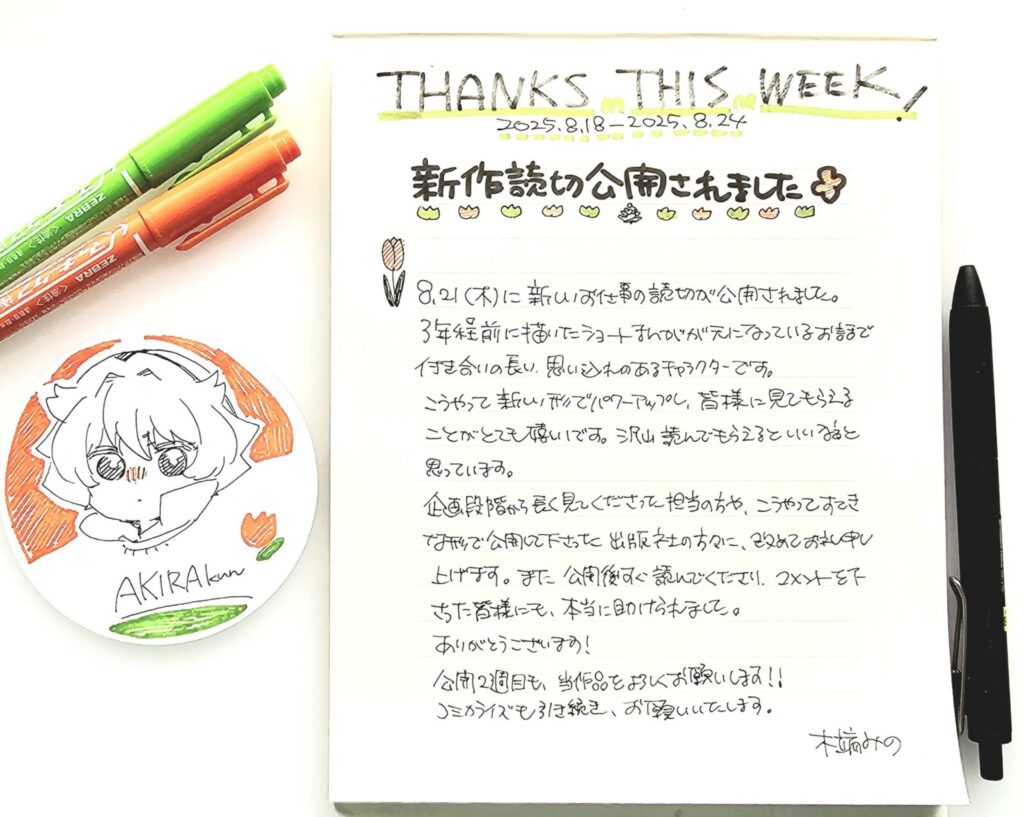 THANKS THIS WEEK!
2025.8.18-2025.8.24
新作読切公開されました
8.21(木)に新しいお仕事の読切が公開されました。
3年程前に描いたショートまんがが元になっているお話で
付き合いの長い、思い込れのあるキャラクターです。
こうやって新しい形でパワーアップし、皆様に見てもらえる
ことがとても嬉しいです。沢山読んでもらえるといいなあと
思っています。
企画段階から長く見てくださった担当の方や、こうやってすてき
な形で公開して下さった出版社の方々に、改めてお礼申し
上げます。また公開後すぐ読んでくださり、コメントを下
さった皆様にも、本当に助けられました。
ありがとうございます!
公開2週目も、当作品をよろしくお願いします!!
コミカライズも引き続き、お願いいたします。
木端みの
ZEBRA
マッキー
ZEBRA
マッキー
AKIRAkun